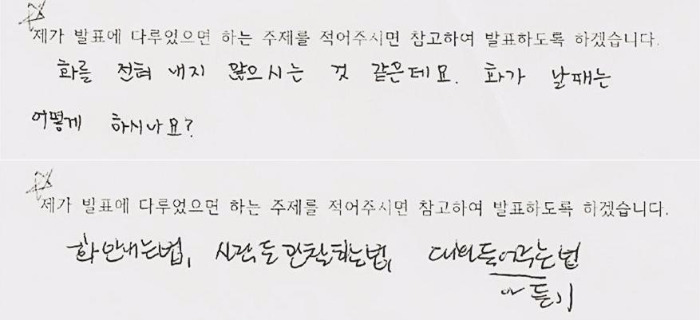 제가 발표에 다루었으면 하는 주제를 적어주시면 참고하여 발표하도록 하겠습니다.
화를 전혀 내지 않으시는 것 같은데요. 화가 날때는
어떻게 하시나요?
제가 발표에 다루었으면 하는 주제를 적어주시면 참고하여 발표하도록 하겠습니다.
화 안내는법, 시간을 관찰하는법, 대화들어주는법
듣기